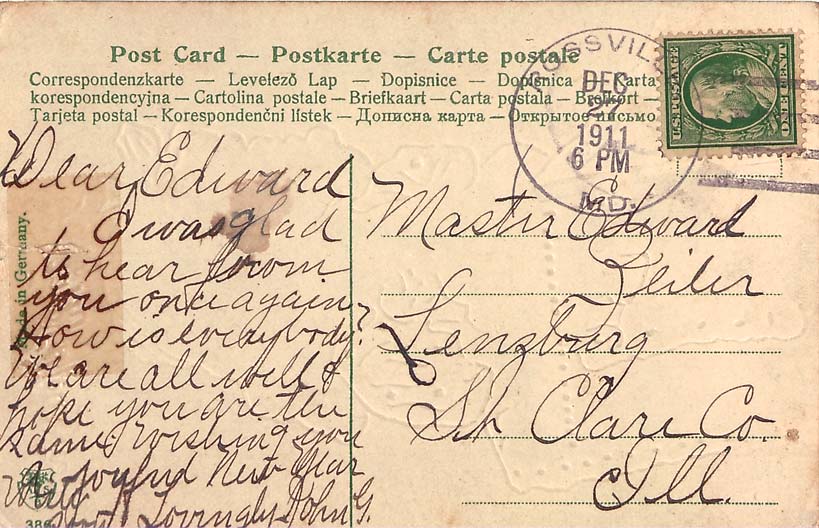 Post Card — Postkarte — Carte postale
Correspondenzkarte — Levelező Lap — Dopisnice — Dopisnica — Karta
korespondencyjna — Cartolina postale — Briefkaart — Carta postala — Brefkort —
Tarjeta postal — Korespondenční lístek — Дописна карта — Открытое письмо
ROSSVILLE
DEC
1911
6 PM
MD.
U.S. POSTAGE
ONE CENT
Made in Germany.
Dear Edward
I was glad
to hear from
you once again
How is everybody?
We are all well &
hope you are the
same Wishing you
A joyful New Year
Lovingly John G.
Master Edward
Lenzburg
St. Clare Co.
Ill.